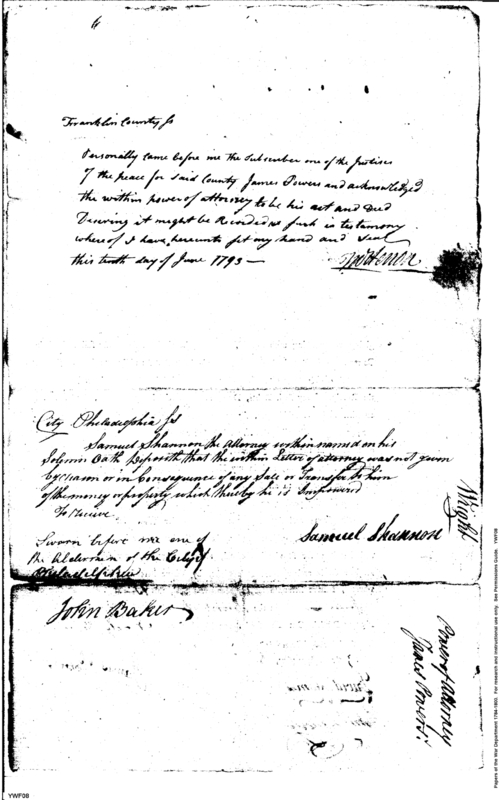 Franklin County Ss
Personally came before me the Subscriber one of the Justices
of the peace for said County James Powers and acknowledged
the within power of attorney to be his act and Deed
Desiring it might be Recorded as such in testimony
whereof I have hereunto set my hand and Seal
this tenth day of June 1793 —
City Philadelphia Ss
Samuel Shannon the Attorney within named on his
Solemn Oath Deposeth that the within Letter of attorney was not given
by reason or in Consequence of any Sale or Transfer to him
of the money or property which thereby he is Impowered
To Receive
Samuel Shannon
Sworn before me one of
the Aldermen of the City of
Philadelphia
John Baker
Wright
Power of Attorney
James Powers
Papers of the War Department 1784-1800. For research and instructional use only. See Permissions Guide. YWF08
YWF08